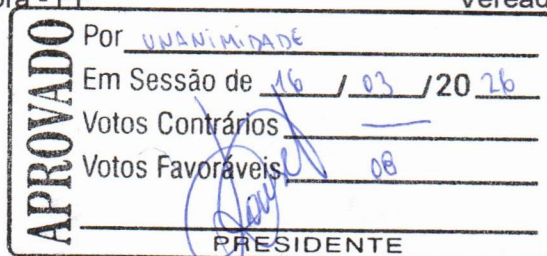 APROVADO
Por UNANIMIDADE
Em Sessão de 16 / 03 / 20 26
Votos Contrários —
Votos Favoráveis 08
PRESIDENTE